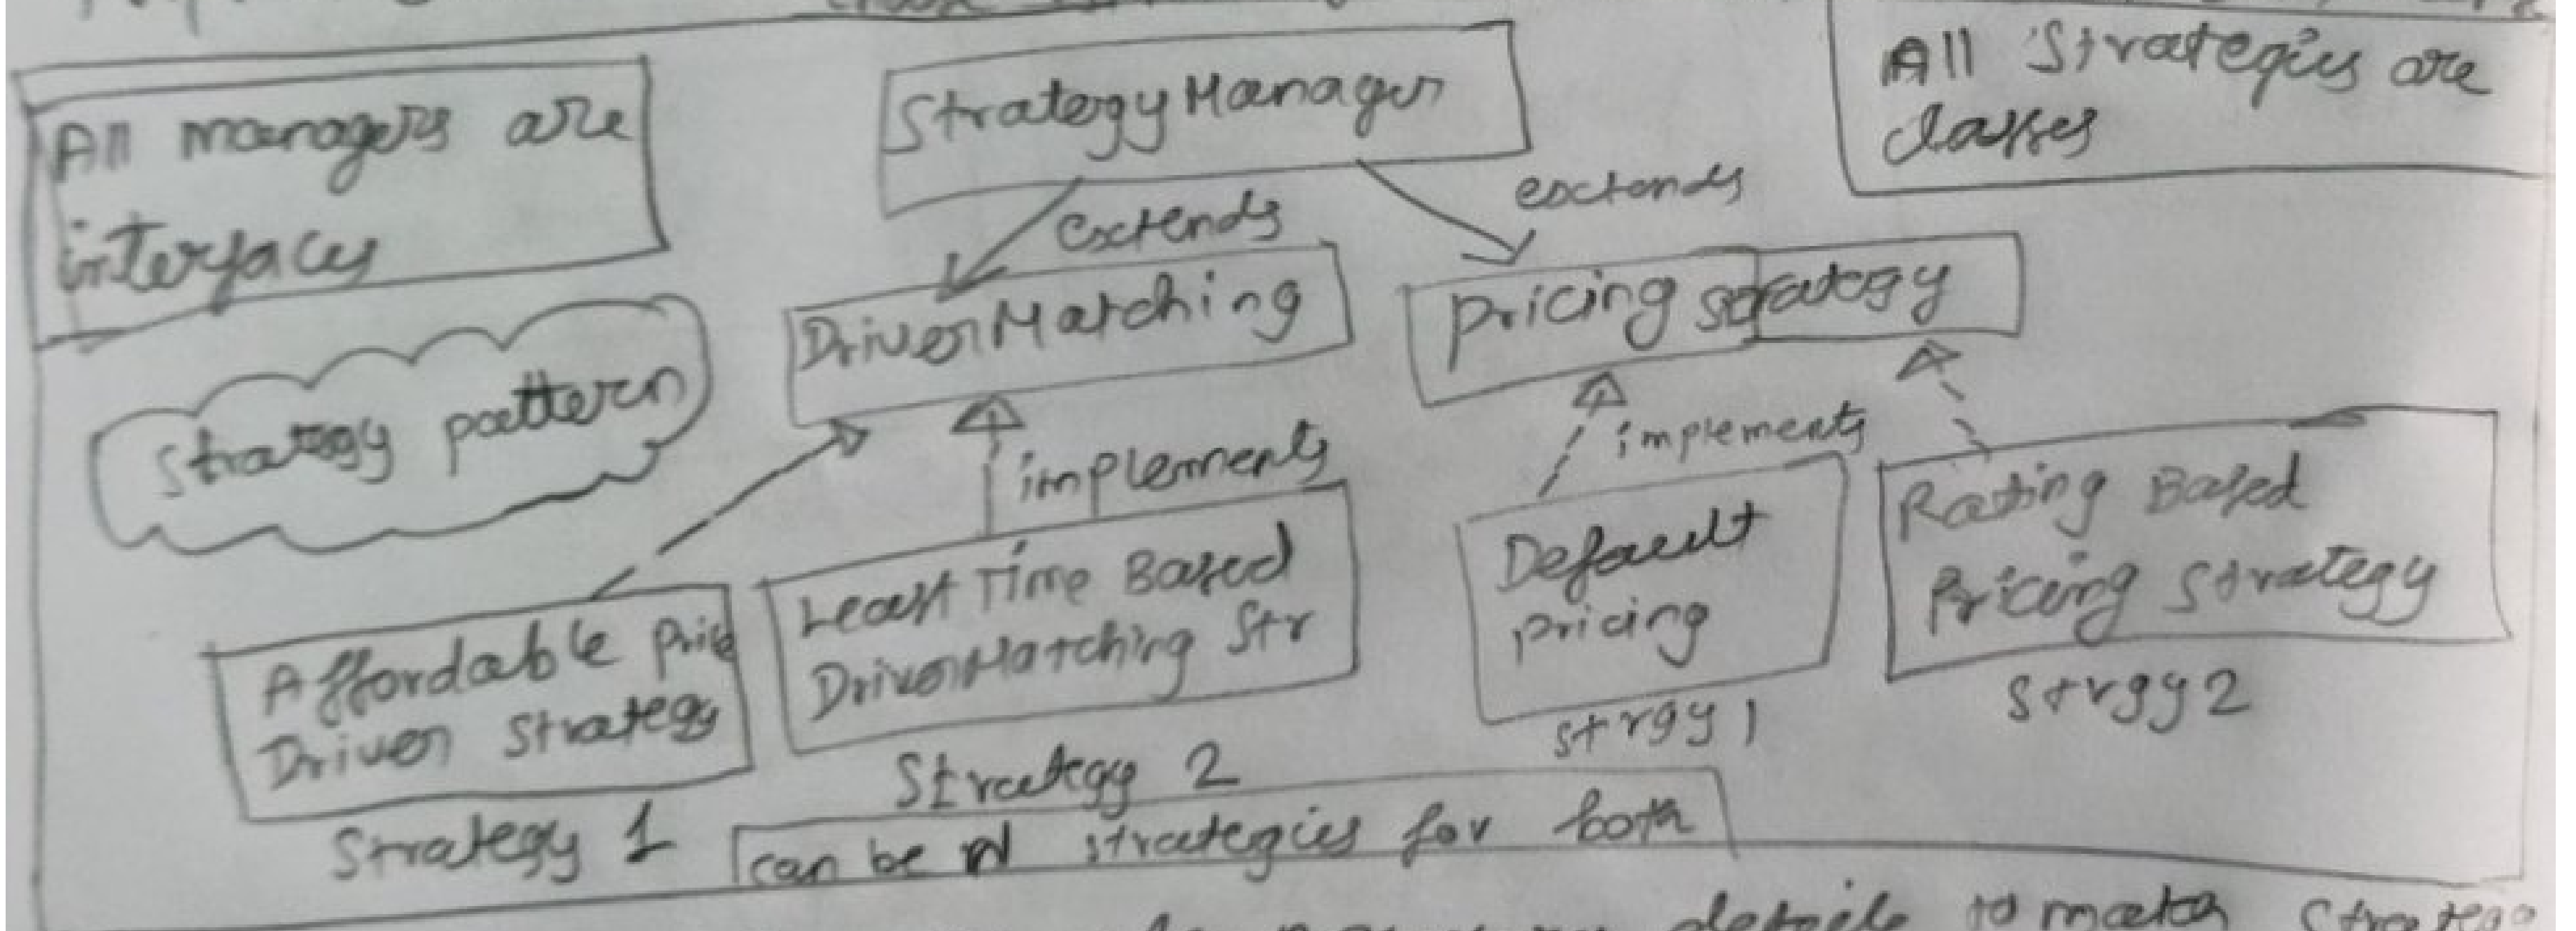 All managers are
interfaces
StrategyManager
All Strategies are
classes
extends
extends
DriverMatching
Pricing Strategy
Strategy pattern
implements
implements
Affordable Price
Driver Strategy
Strategy 1
Least Time Based
DriverMatching Str
Strategy 2
Default
pricing
strgy 1
Rating Based
Pricing Strategy
Strgy 2
can be N strategies for both
details to match Strategy